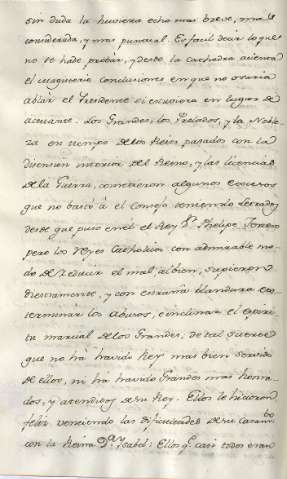 sin duda la huviera echo mas breve, mas
considerada, y mas puncual. Es facil decir lo que
no se ha de probar, y desde la cathedra
conclusiones en que no osaria
ablar el Presidente si estuviera en lugar de
actuante. Los Grandes, los Prelados, y la Noble
za en tiempo de los Reies pasados con la
disension interior del Reino, y las licencias
de la Guerra, cometieron algunos excesos
que no bastó á el Consejo
desde que puso en el el Rey Dn. Phelipe
pero los Reyes Catholicos con admirable mo
do de reducir el mal al bien, supieron
diestramente, y con estraña blandura ex
terminar los Abusos, é inclinar el espiri
tu marcial de los Grandes, de tal suerte
que no há havido Rey mas bien servido
de ellos, ni há havido Grandes mas honra
dos, y atendidos de su Rey. Ellos le hicieron
feliz, venciendo las dificultades de su Casamto
con la Reina Da. Ysabel: Ellos q. casi todos eran